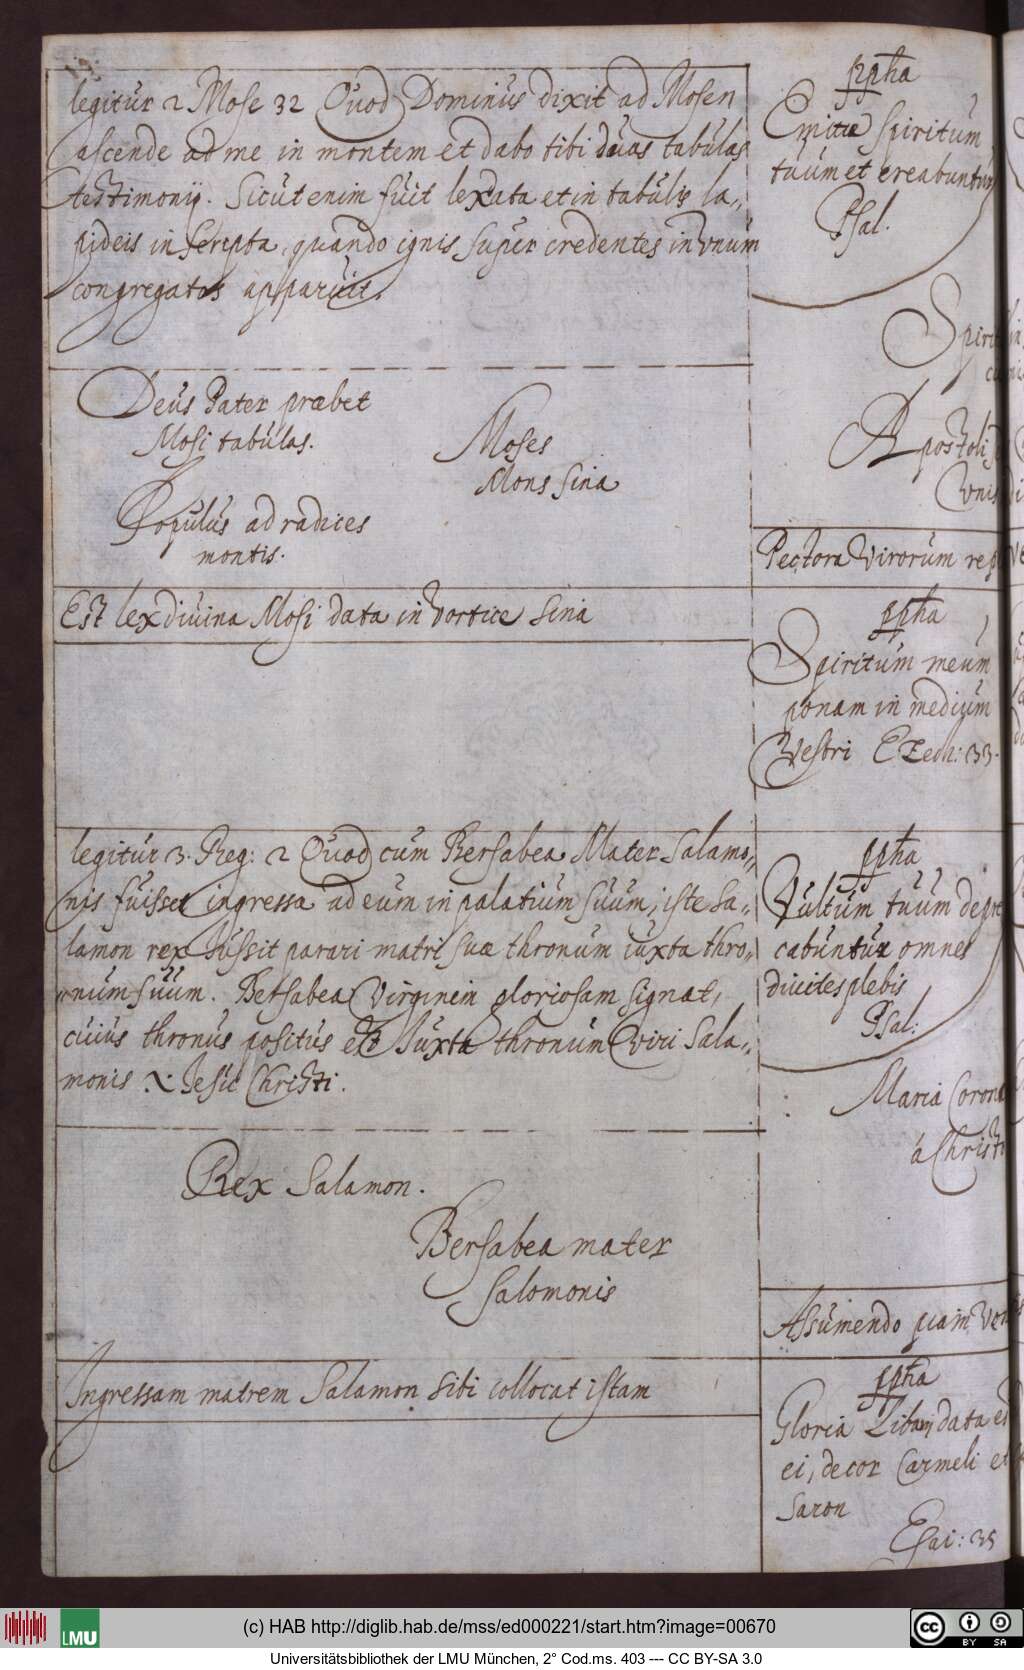 legitur 2 Mose 32 Quod Dominus dixit ad Mosen
ascende ad me in montem et dabo tibi duas tabulas
testimonij. Sicut enim fuit lex data et in tabulis la„
pideis in scripta, quando ignis super credentes in vnum
congregatos apparuit.
Deus Pater præbet
Mosi tabulas.
Moses
Mons Sina
Populus ad radices
montis.
Est lex diuina Mosi data in vortice Sina
legitur 3. Reg: 2 Quod cum Bersabea Mater Salamo„
nis fuisset ingressa ad eum in palatium suum, iste Sa„
lamon rex Iussit parari matri suæ thronum iuxta thro„
num suum. Betsabea Virginem gloriosam signat,
cuius thronus positus est Iuxta thronum Viri Sala„
monis .i. Jesu Christi.
Rex Salamon.
Bersabea mater
Salomonis
Ingressam matrem Salamon sibi collocat istam
ppha
Emitte Spiritum
tuum et creabuntur
Psal.
Spirit
Apostoli
vnis
Pectora Virorum
ppha
Spiritum meum
ponam in medium
Vestri Ezech: 33.
ppha
Vultum tuum depre
cabuntur omnes
diuites plebis
Psal:
Maria Coron
á Christ
Assumendo piam
ppha
Gloria Libani data es
ei, decor Carmeli et
Saron
Esai: 35
LMU
(c) HAB http://diglib.hab.de/mss/ed000221/start.htm?image=00670
cc BY SA
Universitätsbibliothek der LMU München, 2° Cod.ms. 403 --- CC BY-SA 3.0